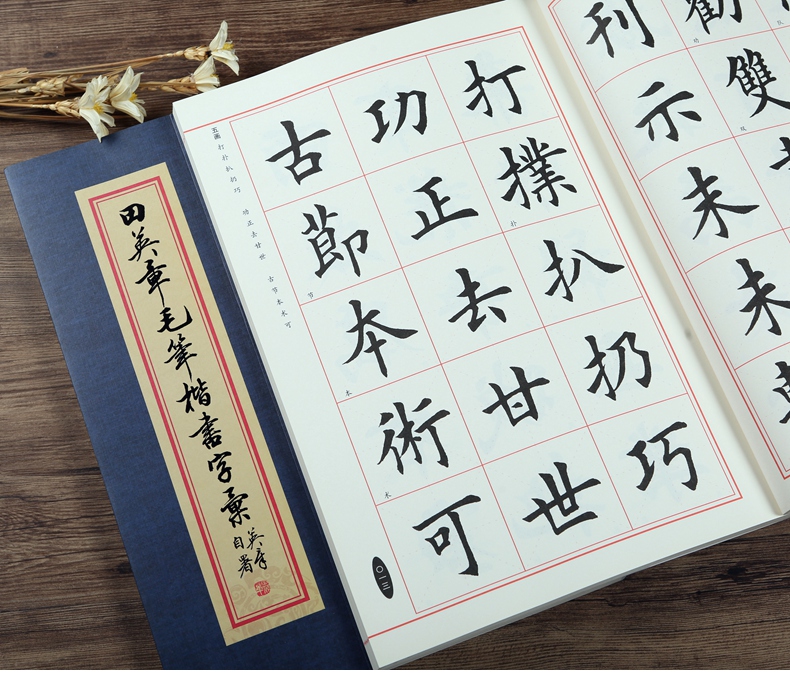 田英章毛筆楷書字彙
英章
自署
五画 打扑扒扔巧 功正去甘世 古节本术可
打撲扒扔巧
扑
功正去甘世
古節本術可
节
术
〇一三
勸雙
劝
双
刊示未